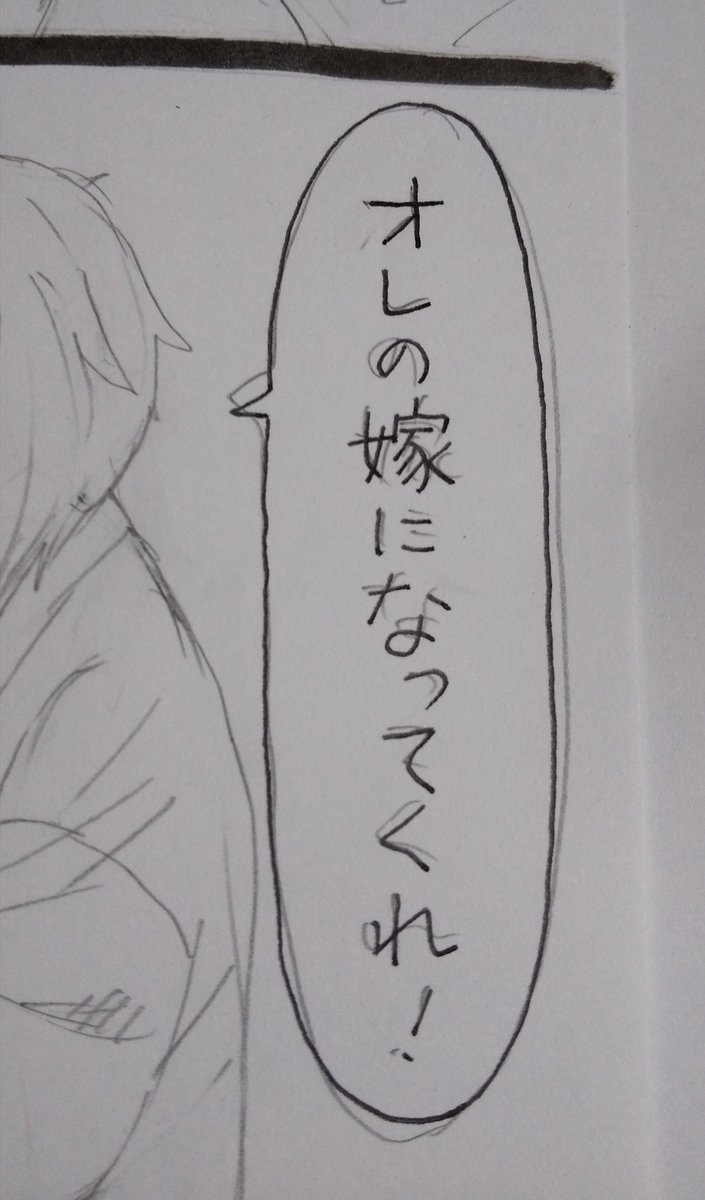 オレの嫁になってくれ!